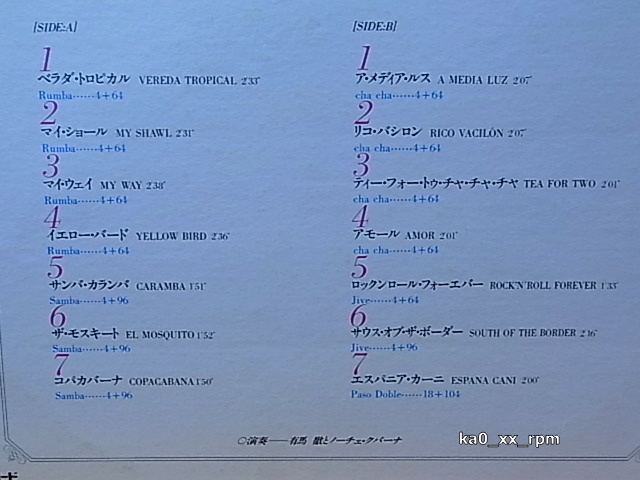 [SIDE:A]
1
ベラダ・トロピカル VEREDA TROPICAL 2'33"
Rumba……4+64
2
マイ・ショール MY SHAWL 2'31"
Rumba……4+64
3
マイ・ウェイ MY WAY 2'38"
Rumba……4+64
4
イエロー・バード YELLOW BIRD 2'36"
Rumba……4+64
5
サンバ・カランバ CARAMBA 1'51"
Samba……4+96
6
ザ・モスキート EL MOSQUITO 1'52"
Samba……4+96
7
コパカバーナ COPACABANA 1'50"
Samba……4+96
[SIDE:B]
1
ア・メディア・ルス A MEDIA LUZ 2'07"
cha cha……4+64
2
リコ・バシロン RICO VACILÓN 2'07"
cha cha……4+64
3
ティー・フォー・トゥ・チャ・チャ・チャ TEA FOR TWO 2'01"
cha cha……4+64
4
アモール AMOR 2'01"
cha cha……4+64
5
ロックンロール・フォーエバー ROCK'N'ROLL FOREVER 1'33"
Jive……4+64
6
サウス・オブ・ザ・ボーダー SOUTH OF THE BORDER 2'16"
Jive……4+96
7
エスパニア・カーニ ESPANA CANI 2'00"
Paso Doble……18+104
○演奏――有馬 徹とノーチェ・クバーナ
ka0_xx_rpm